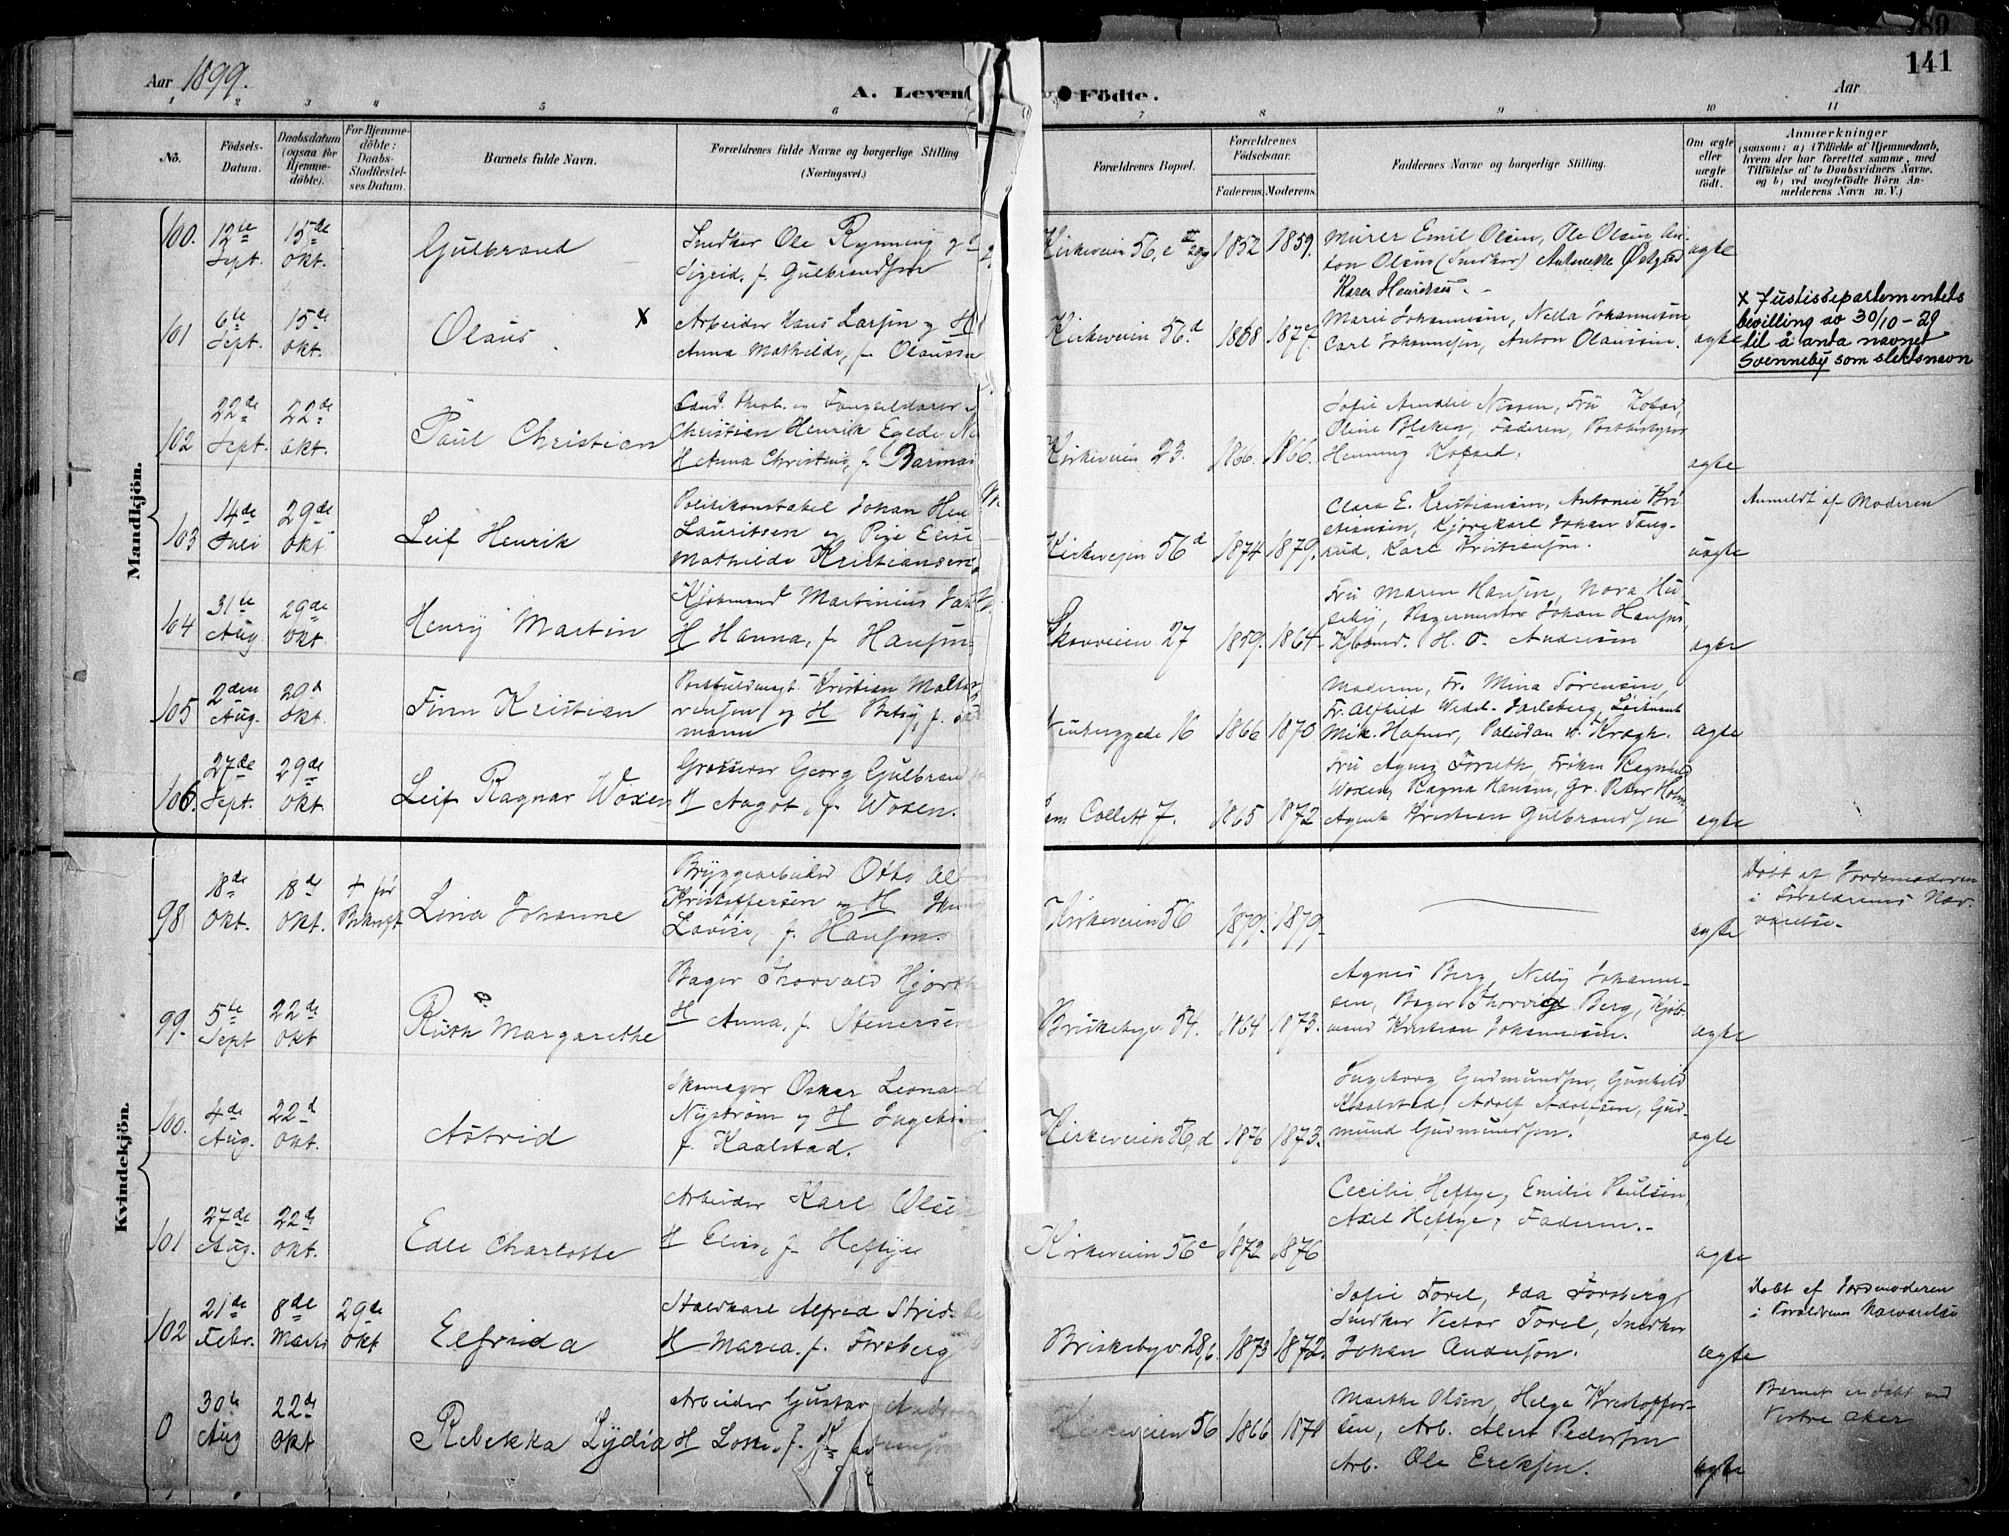 89
141
Aar 1899.
A. Levende Födte.
Aar
1 2 3 4 5 6 7 8 9 10 11
No.
Födsels-
Datum.
Daabsdatum
(ogsaa for
Hjemme-
döbte).
For Hjemme-
döbte:
Daabs-
Stadfæstel-
ses Datum.
Barnets fulde Navn.
Forældrenes fulde Navne og borgerlige Stilling
(Næringsvei.)
Forældrenes Bopæl.
Forældrenes
Födselsaar.
Faderens. Moderens.
Faddernes Navne og borgerlige Stilling.
Om ægte
eller
uægte
födt.
Anmærkninger
(saasom: a) i Tilfælde af Hjemmedaab,
hvem der har forrettet samme, med
Tilföielse af to Daabsvidners Navne,
og b) ved uægtefödte Börn An-
melderens Navn m. V.)
Mandkjön.
100.
12te
Sept.
15de
Okt.
Gulbrand
Snedker Ole Rynning og H
Sigrid, f. Gulbrandsen
Kirkeveien 56, e
1852 1859.
Murer Emil Olsen, Ole Olsen An-
ton Olsen (Snedker) Antonette
Karen Henriksen.
ægte
101
6te
Sept.
15de
Okt.
Olaus x
Arbeider Hans Larsen og H
Anna Mathilde, f. Olaussen
Kirkeveien 56d.
1868 1877.
Marie Johannesen, Nella Johannesen
Carl Johannesen, Anton Olaussen.
ægte
x Justisdepartementets
bevilling av 30/10-29
til å anta navnet
Svenneby som slektsnavn
102
22de
Sept.
22de
Okt.
Paul Christian
Cand. theol. og
Christian Henrik Egede
H Anna Christine, f.
Kirkeveien 23.
1866. 1866.
Sofie Amalie Nissen, Fru
Oline Bleken, Faderen,
Henning Kofoed.
ægte
103
14de
Juli
29de
Okt
Leif Henrik
Politikonstabel Johan Hen
Lauritsen og Pige Elise
Mathilde Kristiansen
Kirkeveien 56d
1874 1879.
Clara E. Kristiansen, Antonie Kri-
stiansen, Kjørekarl Johan Tang-
rud, Karl Kristiansen.
uægte
Anmeldt af Moderen
104
31te
Aug.
29de
Okt.
Henry Martin
Kjøbmand Martinius
H Hanna, f. Hansen
Skovveien 27
1859. 1864.
Fru Maren Hansen, Nora Hu-
seby, Bagermester Johan Hansen,
Kjøbmd. H. O. Andersen
ægte
105
2den
Aug.
29d
Okt.
Finn Kristian
Postfuldmægt. Kristian
og H Betsy, f.
mann
16
1866 1870
Moderen, Fr. Mina Sørensen,
Fr. Alfhild Wedel-Jarlsberg, Løitnant
Mik. Hafner, Paludan v. Krogh.
ægte
106.
27de
Sept.
29de
Okt.
Leif Ragnar Woxen
Grosserer Georg Gulbrand
H Aagot, f. Woxen.
Collett 7.
1865 1872
Fru Agnes Foruth, Frøken Ragnhild
Woxen, Ragna Hansen, Gr. Peter Holm,
Agent Kristian Gulbrandsen
ægte
Kvindekjön.
98
18de
Okt.
18de
Okt.
+ før
Bekræft
Lina Johanne
Bryggearbeider Otto Al
Kristoffersen og H
Lovise, f. Hansen.
Kirkeveien 56
1879. 1879.
ægte
Døbt af Jordemoderen
i Forældrenes Nær-
værelse.
99.
5te
Sept
22de
Okt
Ruth Margarethe
Bager Thorvald Hjorth
H Anna, f. Stenersen
Briskebyv. 54.
1864 1873.
Agnes Berg, Nelly Johanne-
sen, Bager Thorvig Berg, Kjøb-
mand Kristian Johannesen.
ægte
100.
4de
Aug.
22d
Okt.
Astrid
Skomager Oskar Leonard
Nystrøm og H Ingeborg
f. Kaalstad.
Kirkeveien 56,d
1876 1873.
Ingeborg Gudmundsen, Gunhild
Kaalstad, Adolf Adolfsen, Gud-
mund Gudmundsen.
ægte
101
27de
Aug.
22de
Okt.
Edle Charlotte
Arbeider Karl Olsen
H Elise, f. Heftye
Kirkeveien 56c
1872 1876
Cecilie Heftye, Emilie Paulsen,
Axel Heftye, Faderen.
ægte
102
21de
Febr.
8de
Marts
29de
Okt
Elfrida
Staldkarl Alfred Strid
H Maria, f. Forsberg
Briskebyv. 28,b.
1873 1872.
Sofie Forel, Ida Forsberg,
Snedker Victor Forel, Snedker
Johan Anderson.
ægte
Døbt af Jordmoderen
i Forældrenes Nærværelse
0
30te
Aug
22de
Okt
Rebekka Lydia
Arbeider Gustav
H f.
Kirkeveien 56
1866 1871
Marthe Olsen, Helga Kristoffer-
sen, Arb. Albert Pedersen
Arb. Ole Eriksen.
ægte
Barnet er døbt ved
Vestre Aker